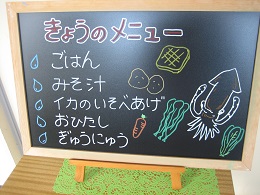 きょうのメニュー
ごはん
みそ汁
イカのいそべあげ
おひたし
ぎゅうにゅう